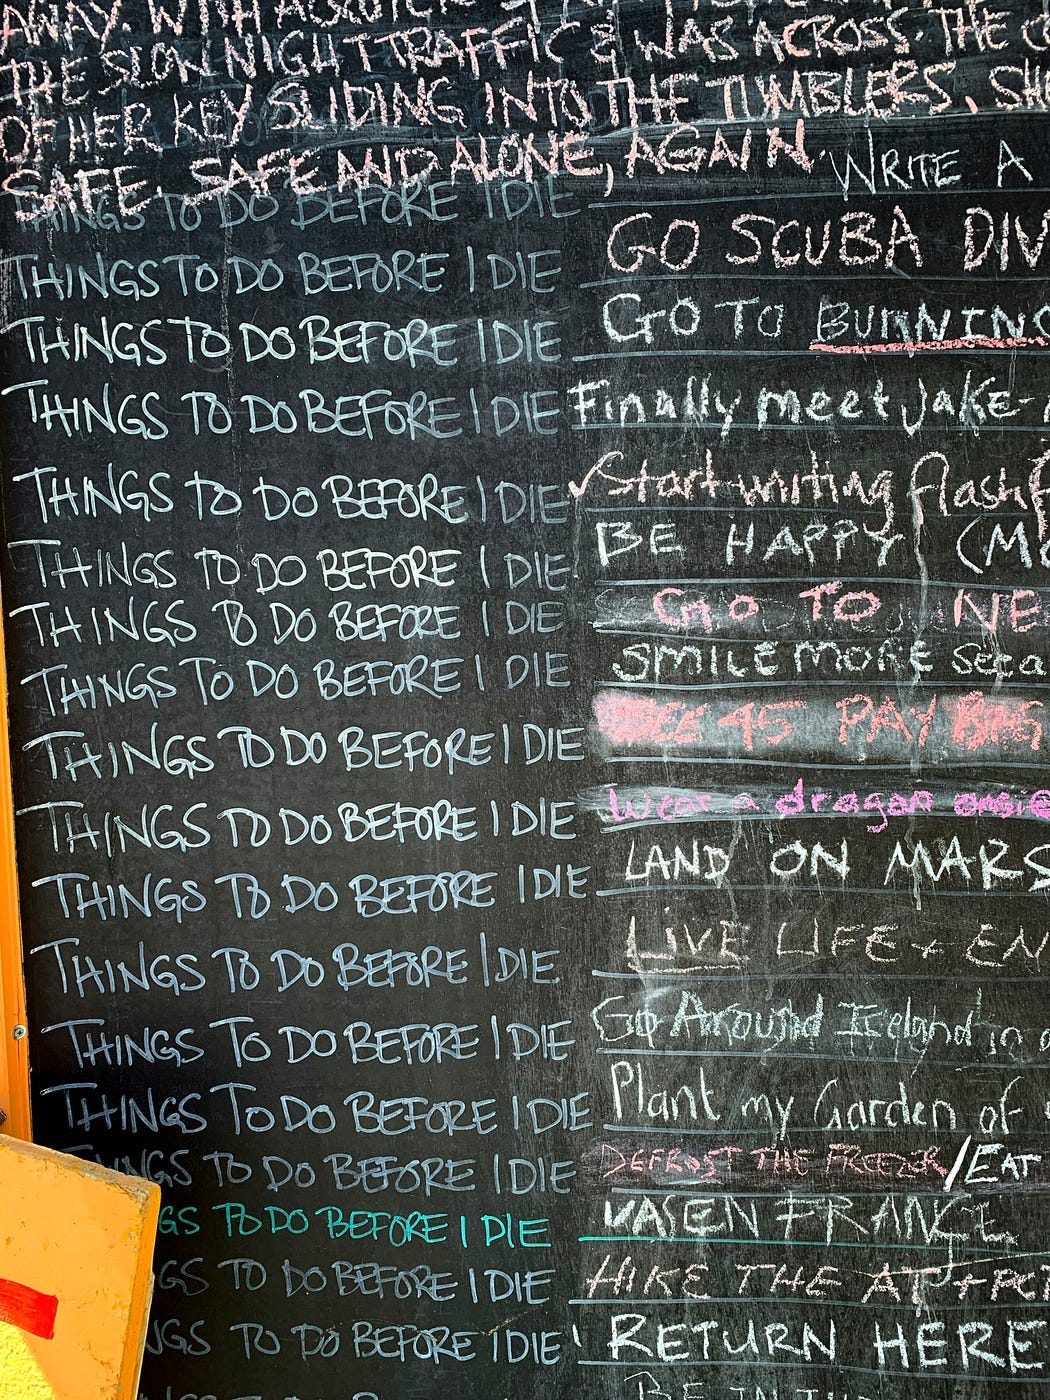 AWAY WITH
THE SLOW NIGHT TRAFFIC & WAS ACROSS. THE
OF HER KEY SLIDING INTO THE TUMBLERS.
SAFE. SAFE AND ALONE, AGAIN.
THINGS TO DO BEFORE I DIE WRITE A
THINGS TO DO BEFORE I DIE GO SCUBA DIV
THINGS TO DO BEFORE I DIE GO TO BURNING
THINGS TO DO BEFORE I DIE Finally meet Jake-
THINGS TO DO BEFORE I DIE Start writing flash
THINGS TO DO BEFORE I DIE BE HAPPY (MO
THINGS TO DO BEFORE I DIE GO TO NE
THINGS TO DO BEFORE I DIE SMILE MORE Seca
THINGS TO DO BEFORE I DIE SEE 45 PAY BIG
THINGS TO DO BEFORE I DIE Wear a dragon onsie
THINGS TO DO BEFORE I DIE LAND ON MARS
THINGS TO DO BEFORE I DIE LIVE LIFE + EN
THINGS TO DO BEFORE I DIE Go Around Iceland in a
THINGS TO DO BEFORE I DIE Plant my Garden of
NGS TO DO BEFORE I DIE DEFROST THE FREEZER/EAT
GS TO DO BEFORE I DIE VASEN FRANCE
GS TO DO BEFORE I DIE HIKE THE AT + PC
NGS TO DO BEFORE I DIE RETURN HERE
BE IN